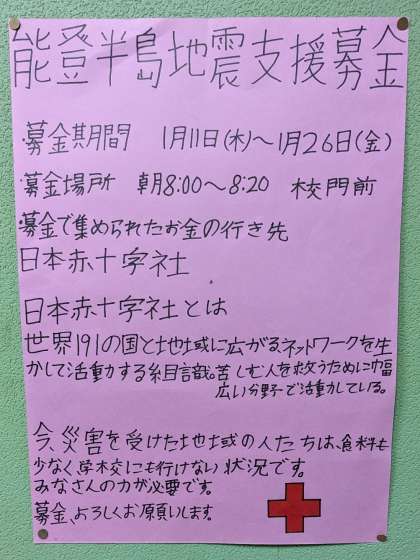 能登半島地震支援募金
・募金期間 1月11日(木)〜1月26日(金)
・募金場所 朝8:00〜8:20 校門前
・募金で集められたお金の行き先
日本赤十字社
日本赤十字社とは
世界191の国と地域に広がるネットワークを生
かして活動する組織。苦しむ人を救うために幅
広い分野で活動している。
今、災害を受けた地域の人たちは、食料も
少なく、学校にも行けない状況です。
みなさんの力が必要です。
募金、よろしくお願いします。